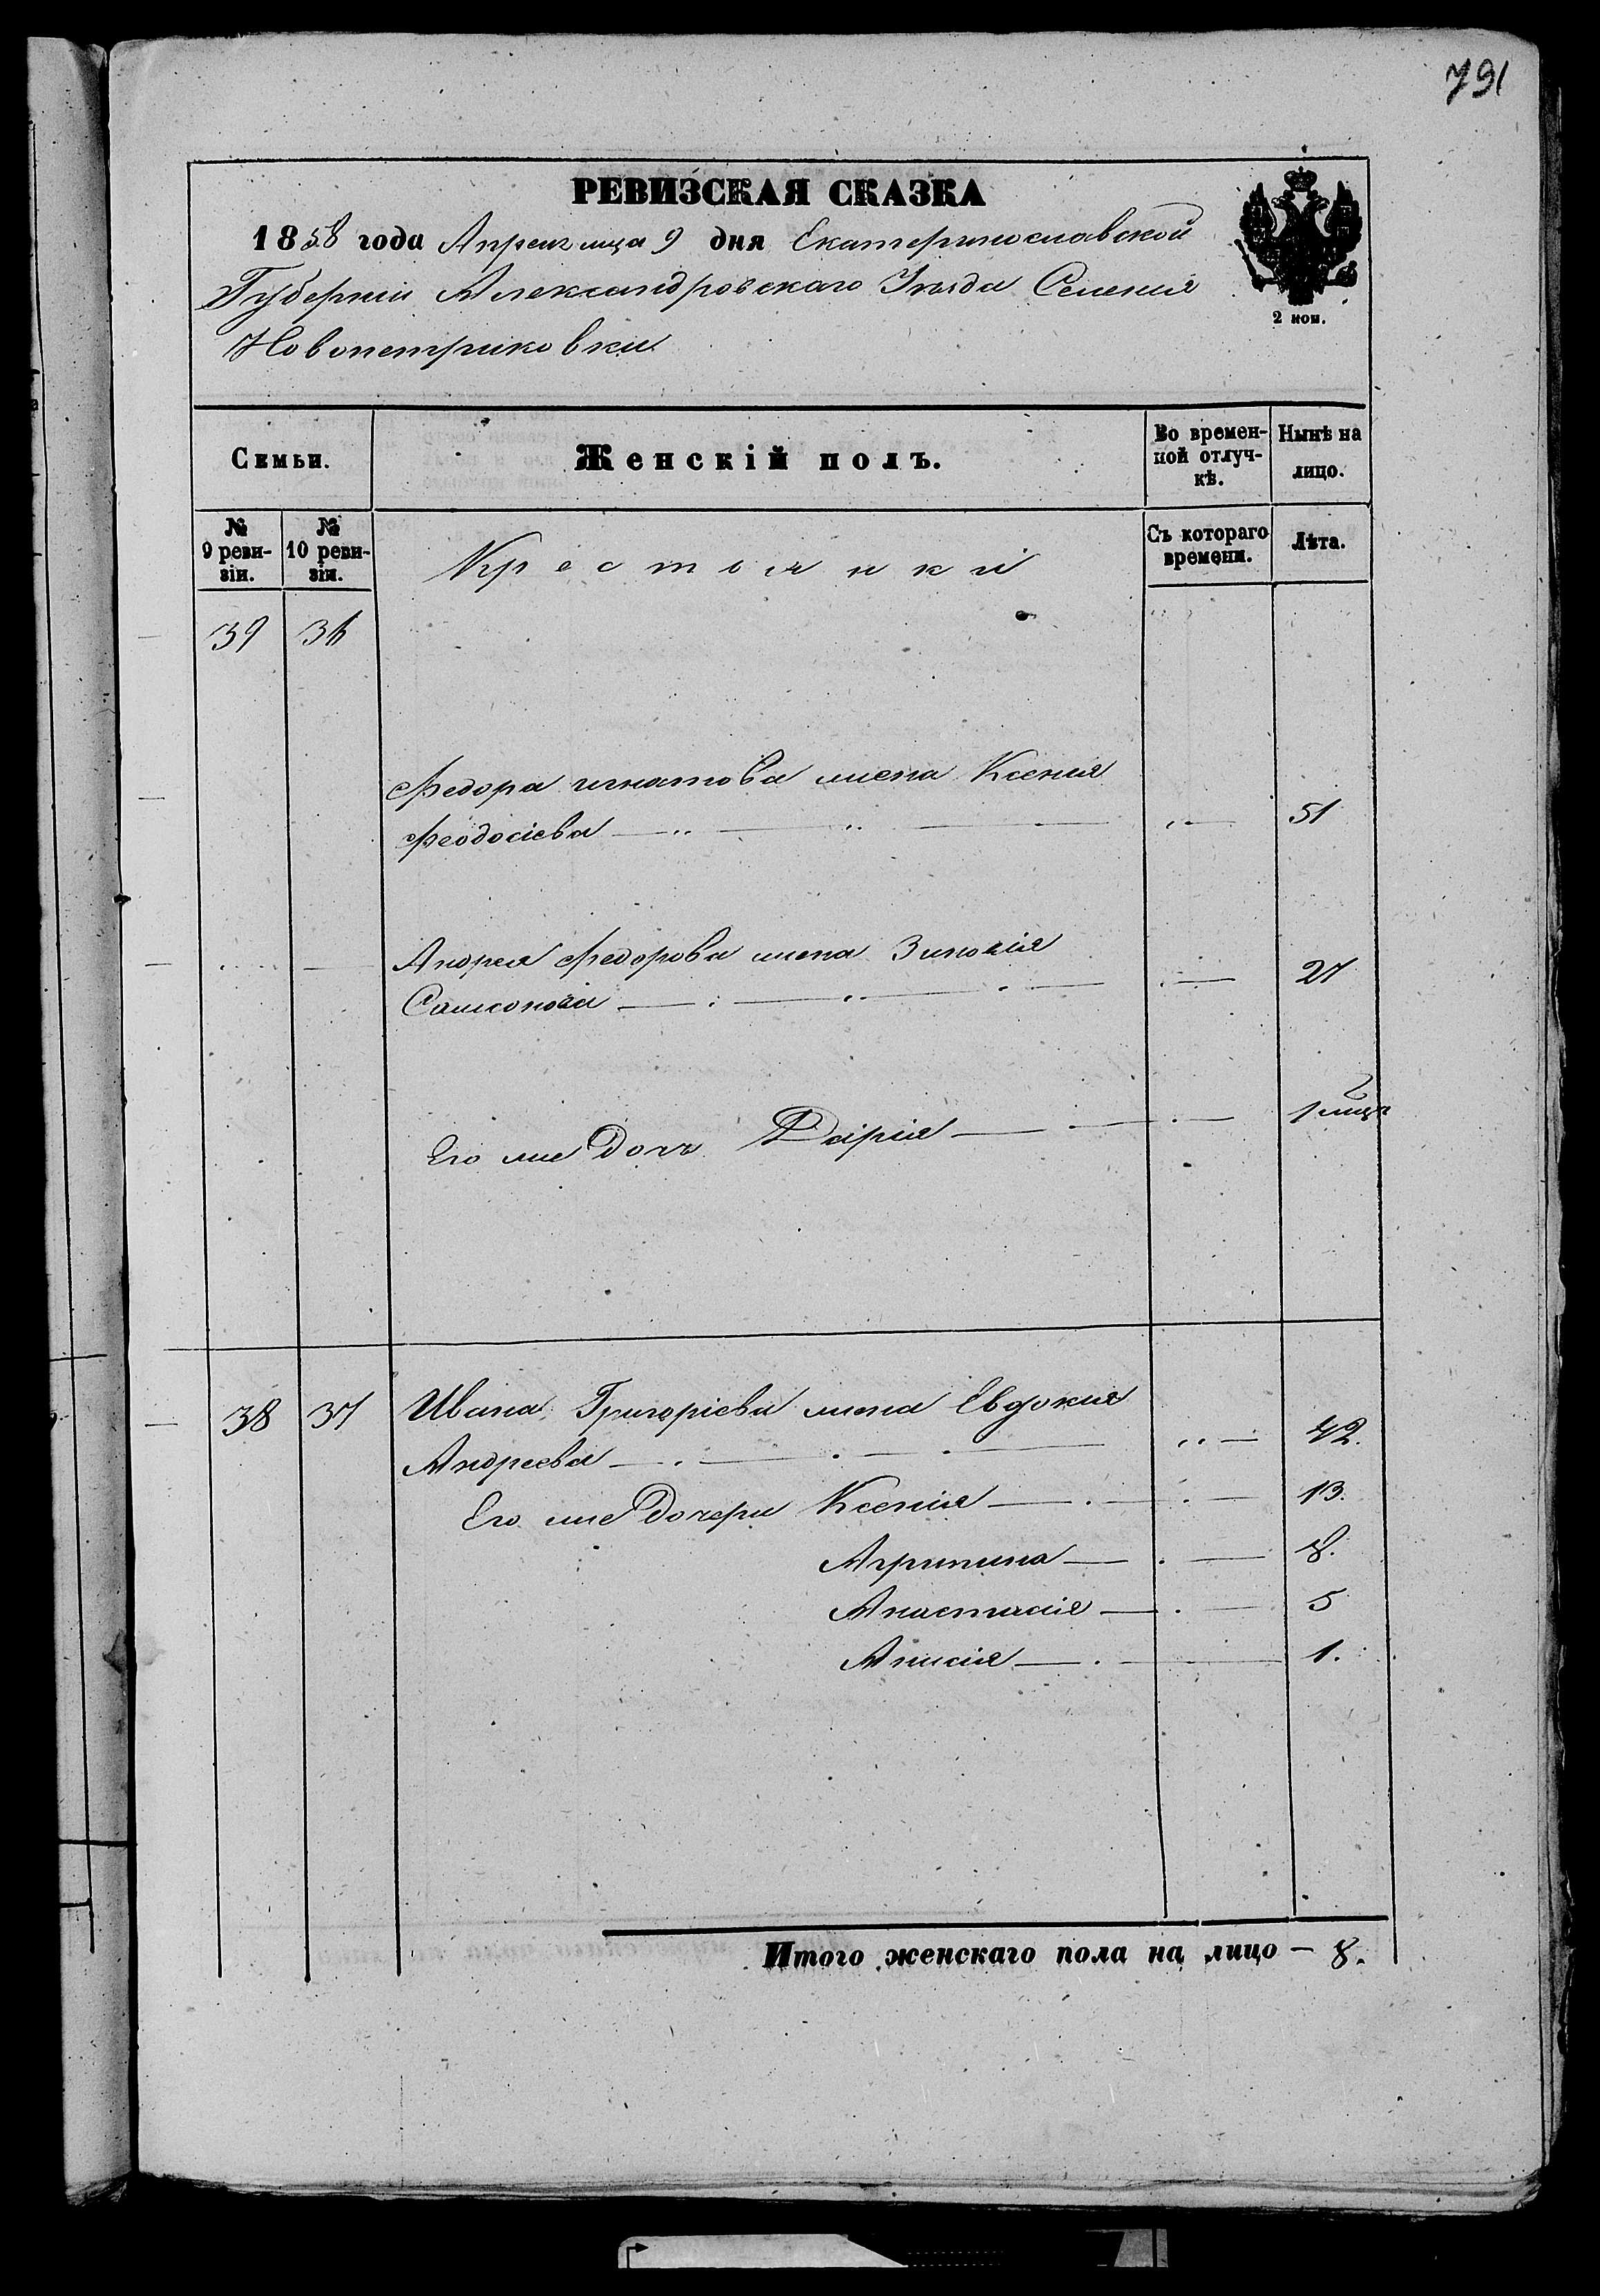 791
РЕВИЗСКАЯ СКАЗКА
1858 года Апреля мца 9 дня Екатеринославской
Губернии Александровскаго Уезда Селения
Новопетриковки
2 коп.
Семьи.
Женскій полъ.
Во времен-
ной отлуч-
кѣ.
Нынѣ на
лицо.
№
9 реви-
зіи.
№
10 реви-
зіи.
Крестьянки
Съ котораго
времени.
Лѣта.
39 36
Федора Игнатова жена Ксения
Феодосіева 51
Андрея Федорова жена Зиновія
Самсонова 27
Его же Дочь Дарія 1 мцъ
38 37 Ивана Григоріева жена Евдокия
Андреева 42.
Его же Дочери Ксенія 13.
Агрипина 8.
Анастасія 5
Анисія 1.
Итого женскаго пола на лицо – 8.